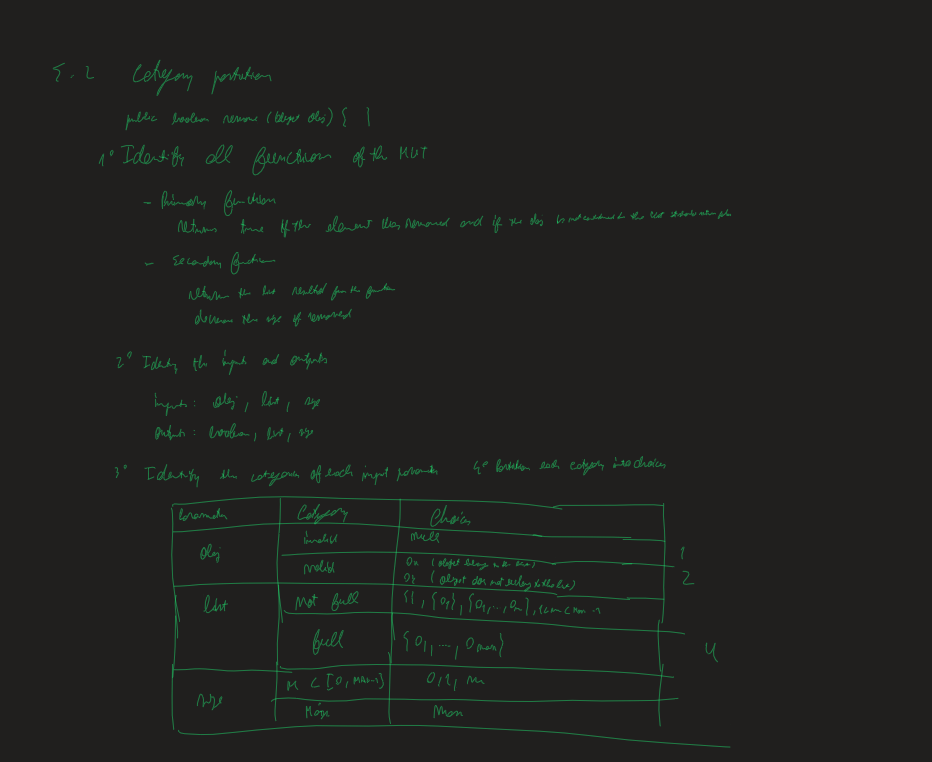 5.2 Category partition
public boolean remove (Object obj) { }
1° Identify all functions of the MUT
- Primary function
Returns true if the element was removed and if the obj is not contained in the list
- Secondary function
return the list resulted from the function
decrease the size if removed
2° Identify the inputs and outputs
inputs: obj, list, size
outputs: boolean, list, size
3° Identify the categories of each input parameter 4° Partition each category into choices
Parameter Category Choices
obj invalid null
1
valid Ox (object belong to the list)
2
Oy (object does not belong to the list)
list Not full {}, {O1}, {O1, ..., Om},
full {O1, ..., Omax}
4
size [0, max-1] 0, 1, m
max